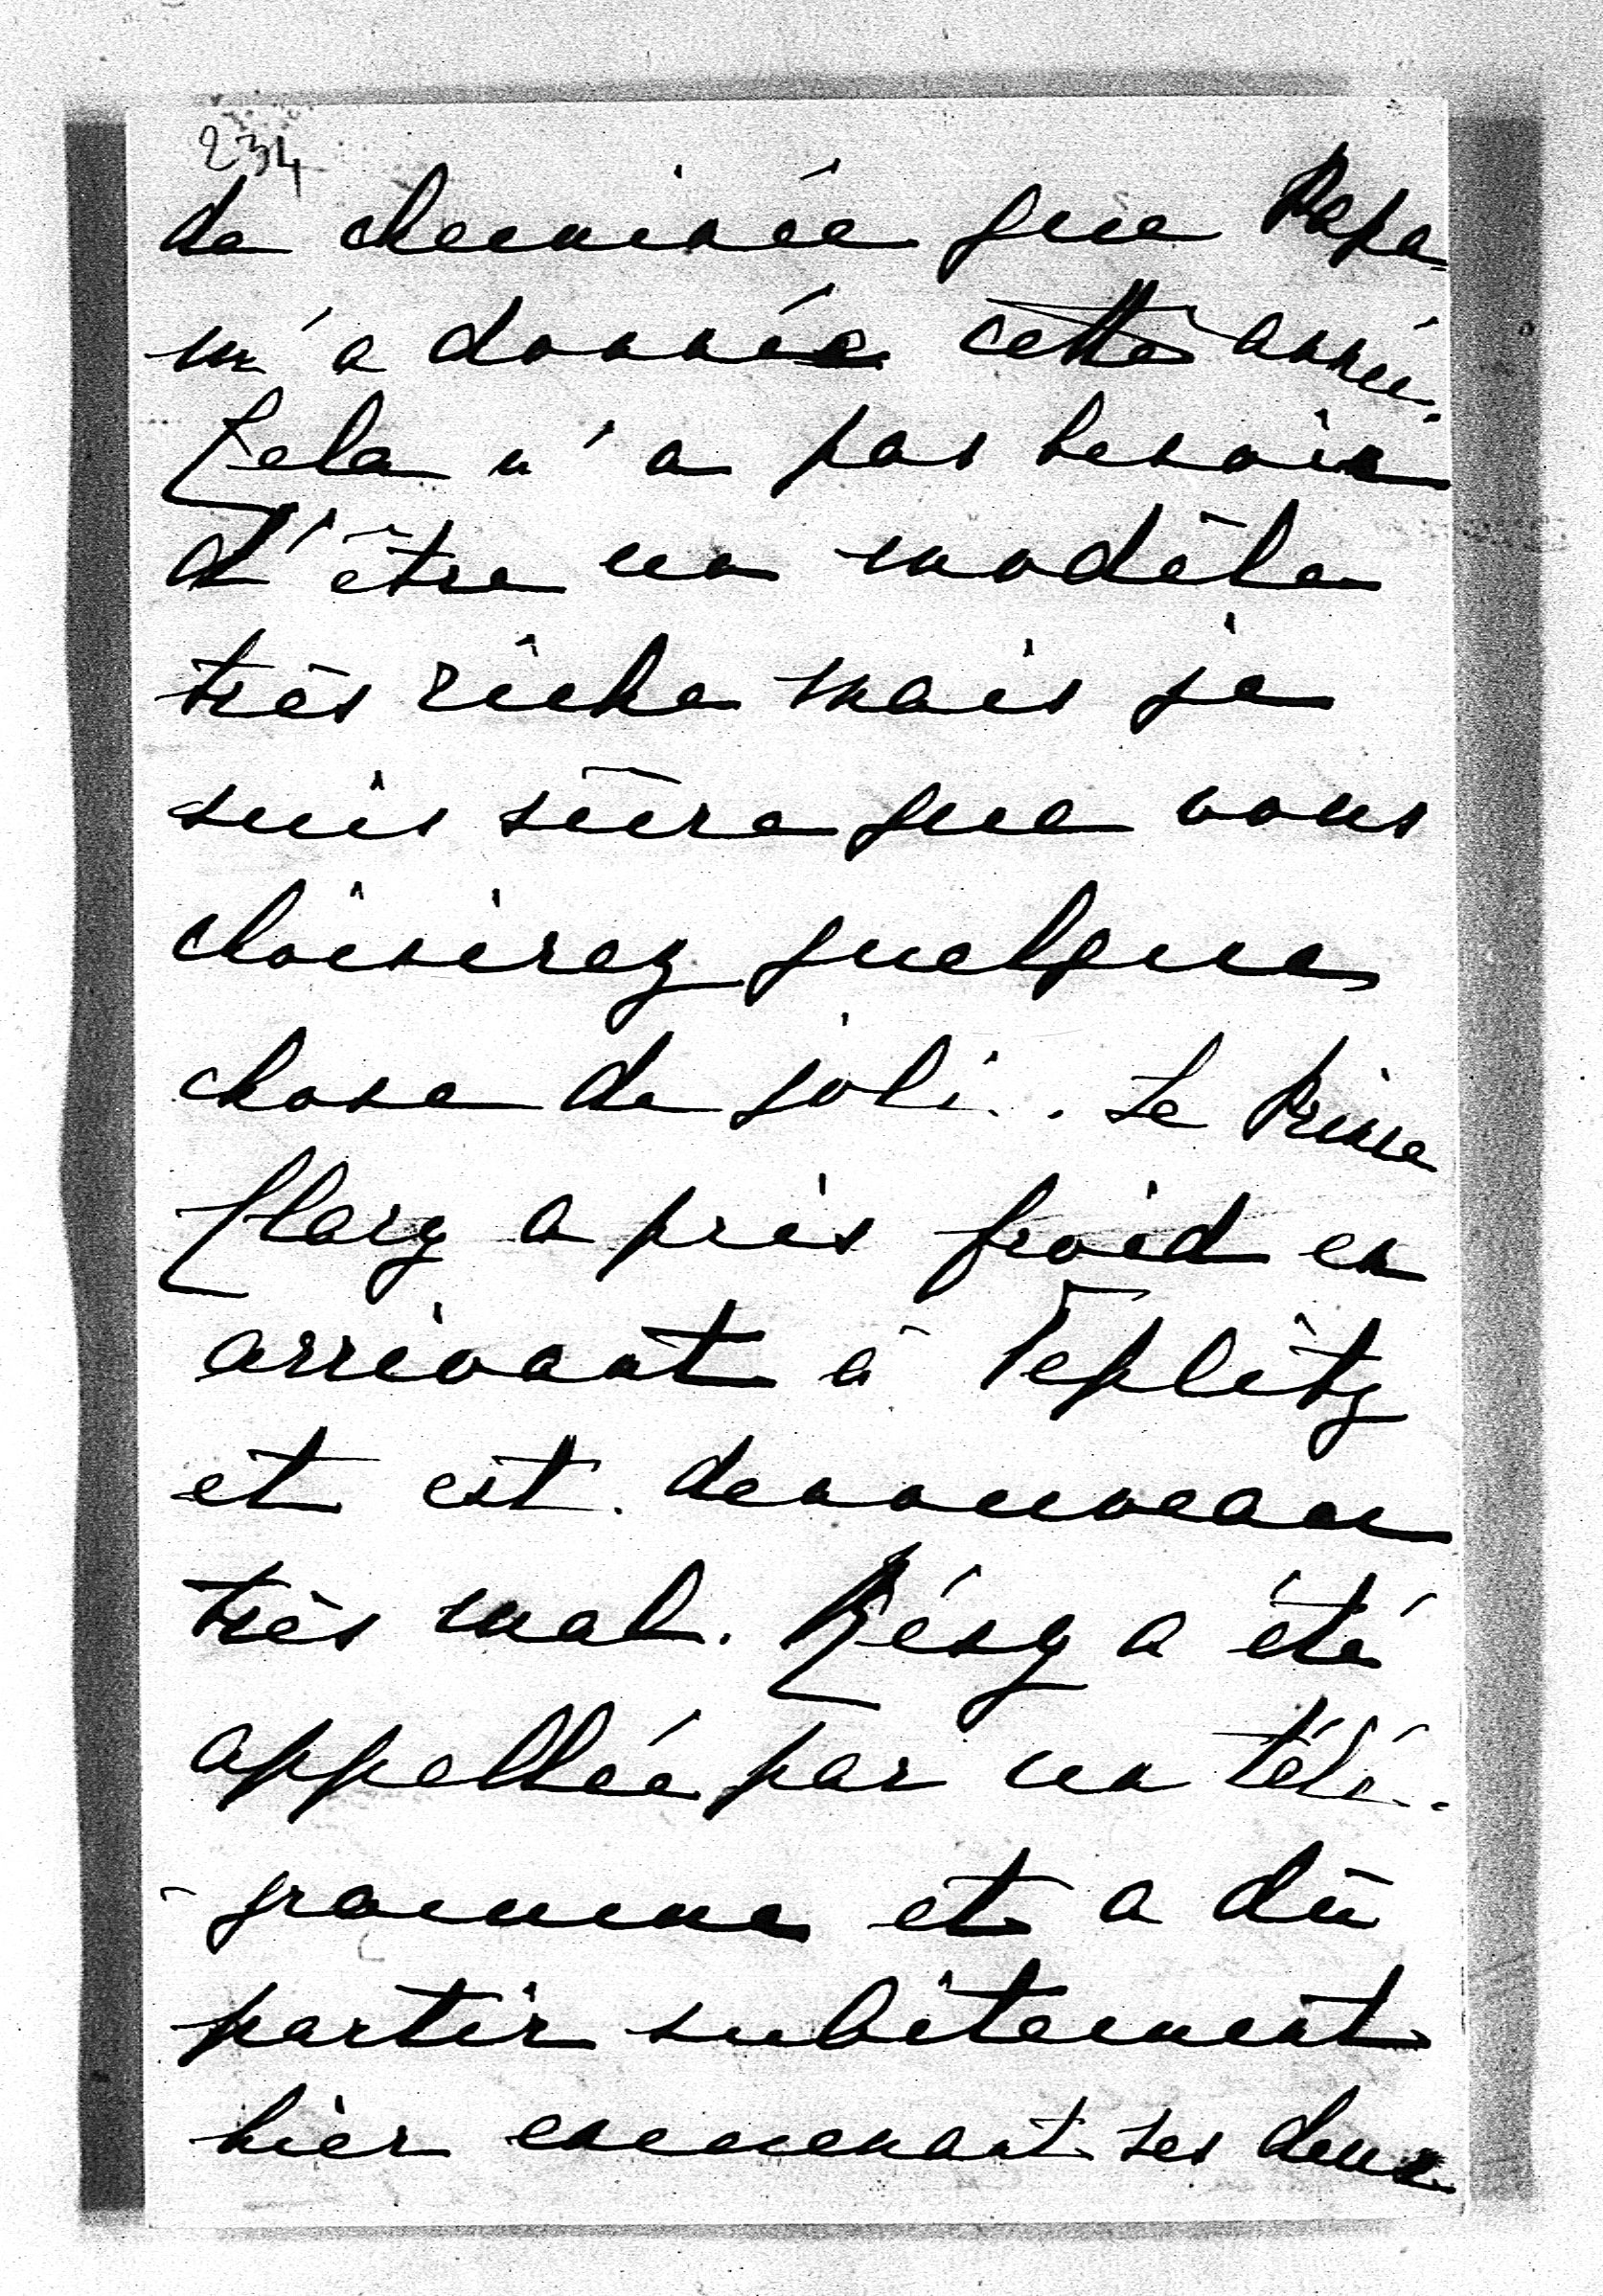 234
de cheminée que Papa
m'a donnée cette année.
Cela n'a pas besoin
d'être un modèle
très riche mais je
suis sûre que vous
choisirez quelque
chose de joli. Le Prince
Clary a pris froid en
arrivant à Teplitz
et est de nouveau
très mal. Résy a été
appellée par un télé-
-gramme et a dû
partir subitement
hier emmenant ses deux